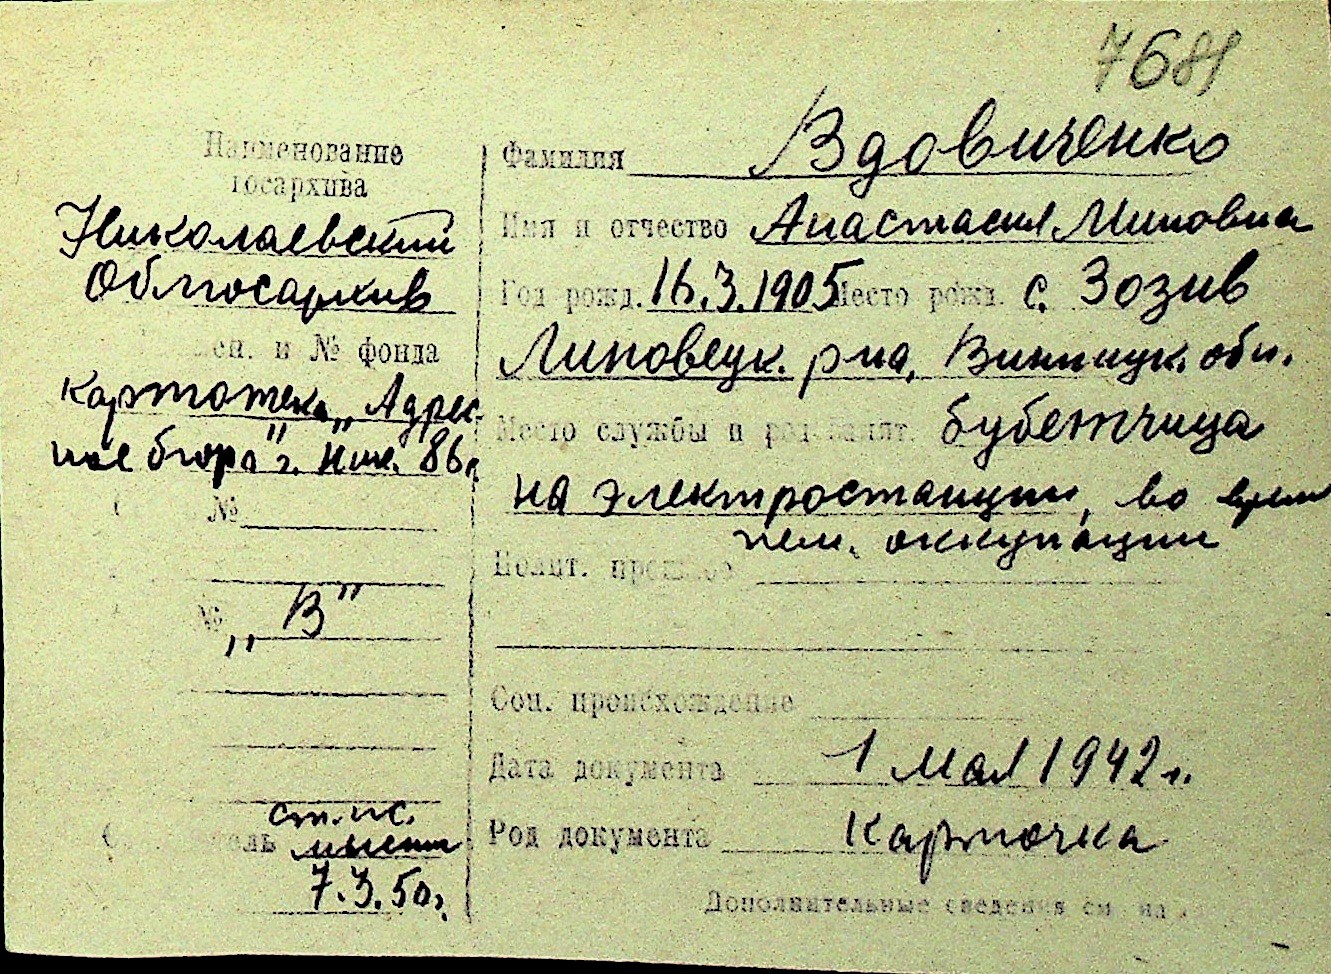 7681
Наименование
госархива
Николаевский
Облгосархив
и № фонда
Картотека „Адрес-
ное бюро" г. Ник. 86
№
№ „В"
ст. ис.
7.3.50г.
Фамилия Вдовиченко
Имя и отчество Анастасия
Год рожд. 16.3.1905 Место рожд. с. Зозив
Липовецк. р-на, Винницк. обл.
Место службы и
на электростанции, во время
нем. оккупации
Полит. прошлое
Соц. происхождение
Дата документа 1 мая 1942 г.
Род документа Карточка
Дополнительные сведения см. на